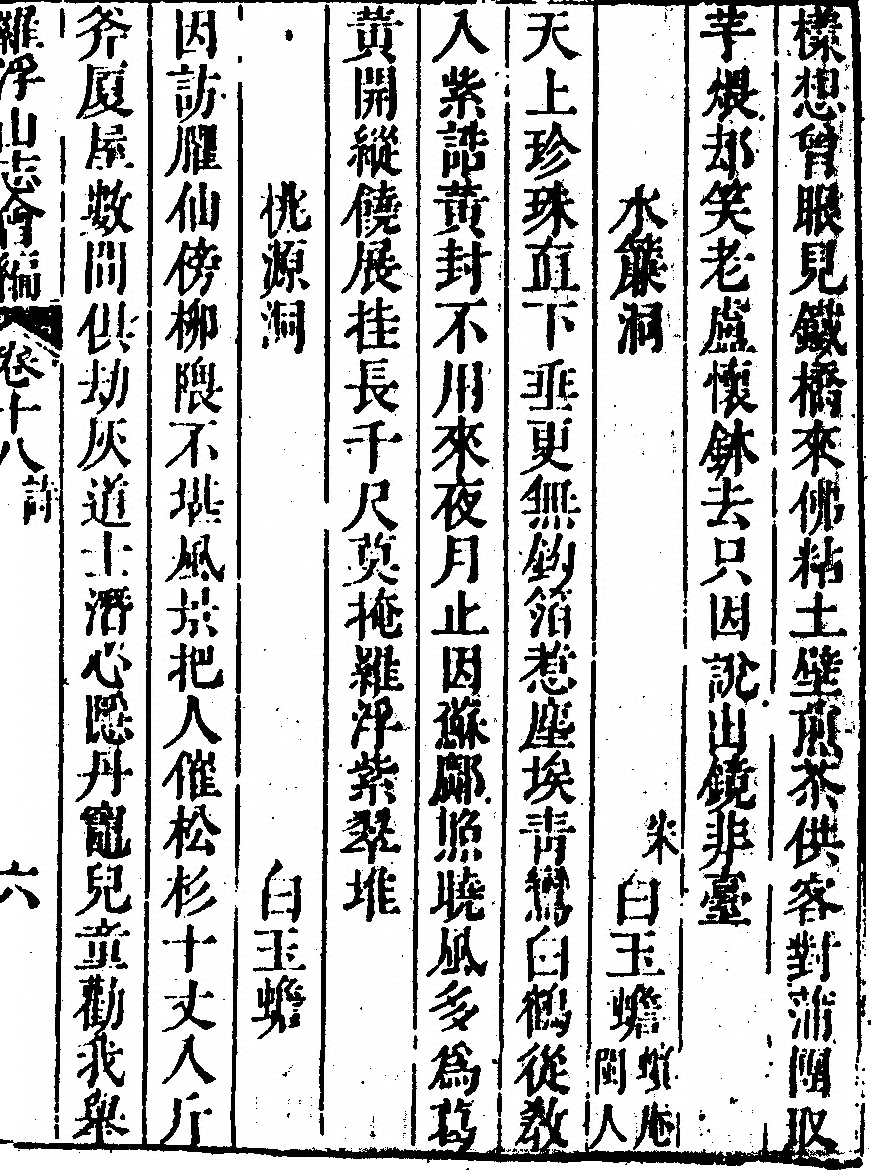 樣想曾眼見鐵橋來佛粘土壁煎茶供客對蒲團取
芋煨却笑老盧懷鉢去只因說出鏡非臺
水簾洞 宋白玉蟾蠙庵閩人
天上珍珠直下垂更無鈎箔惹塵埃青鸞白鶴從教
入紫誥黃封不用來夜月止因蘇鄺照曉風多為葛
黃開縱饒展挂長千尺莫掩羅浮紫翠堆
桃源洞 白玉蟾
因訪臞仙傍柳隈不堪風景把人催松杉十丈入斤
斧厦屋數間供劫灰道士潛心隱丹竈兒童勸我舉
羅浮山志會編 卷十八 詩 六